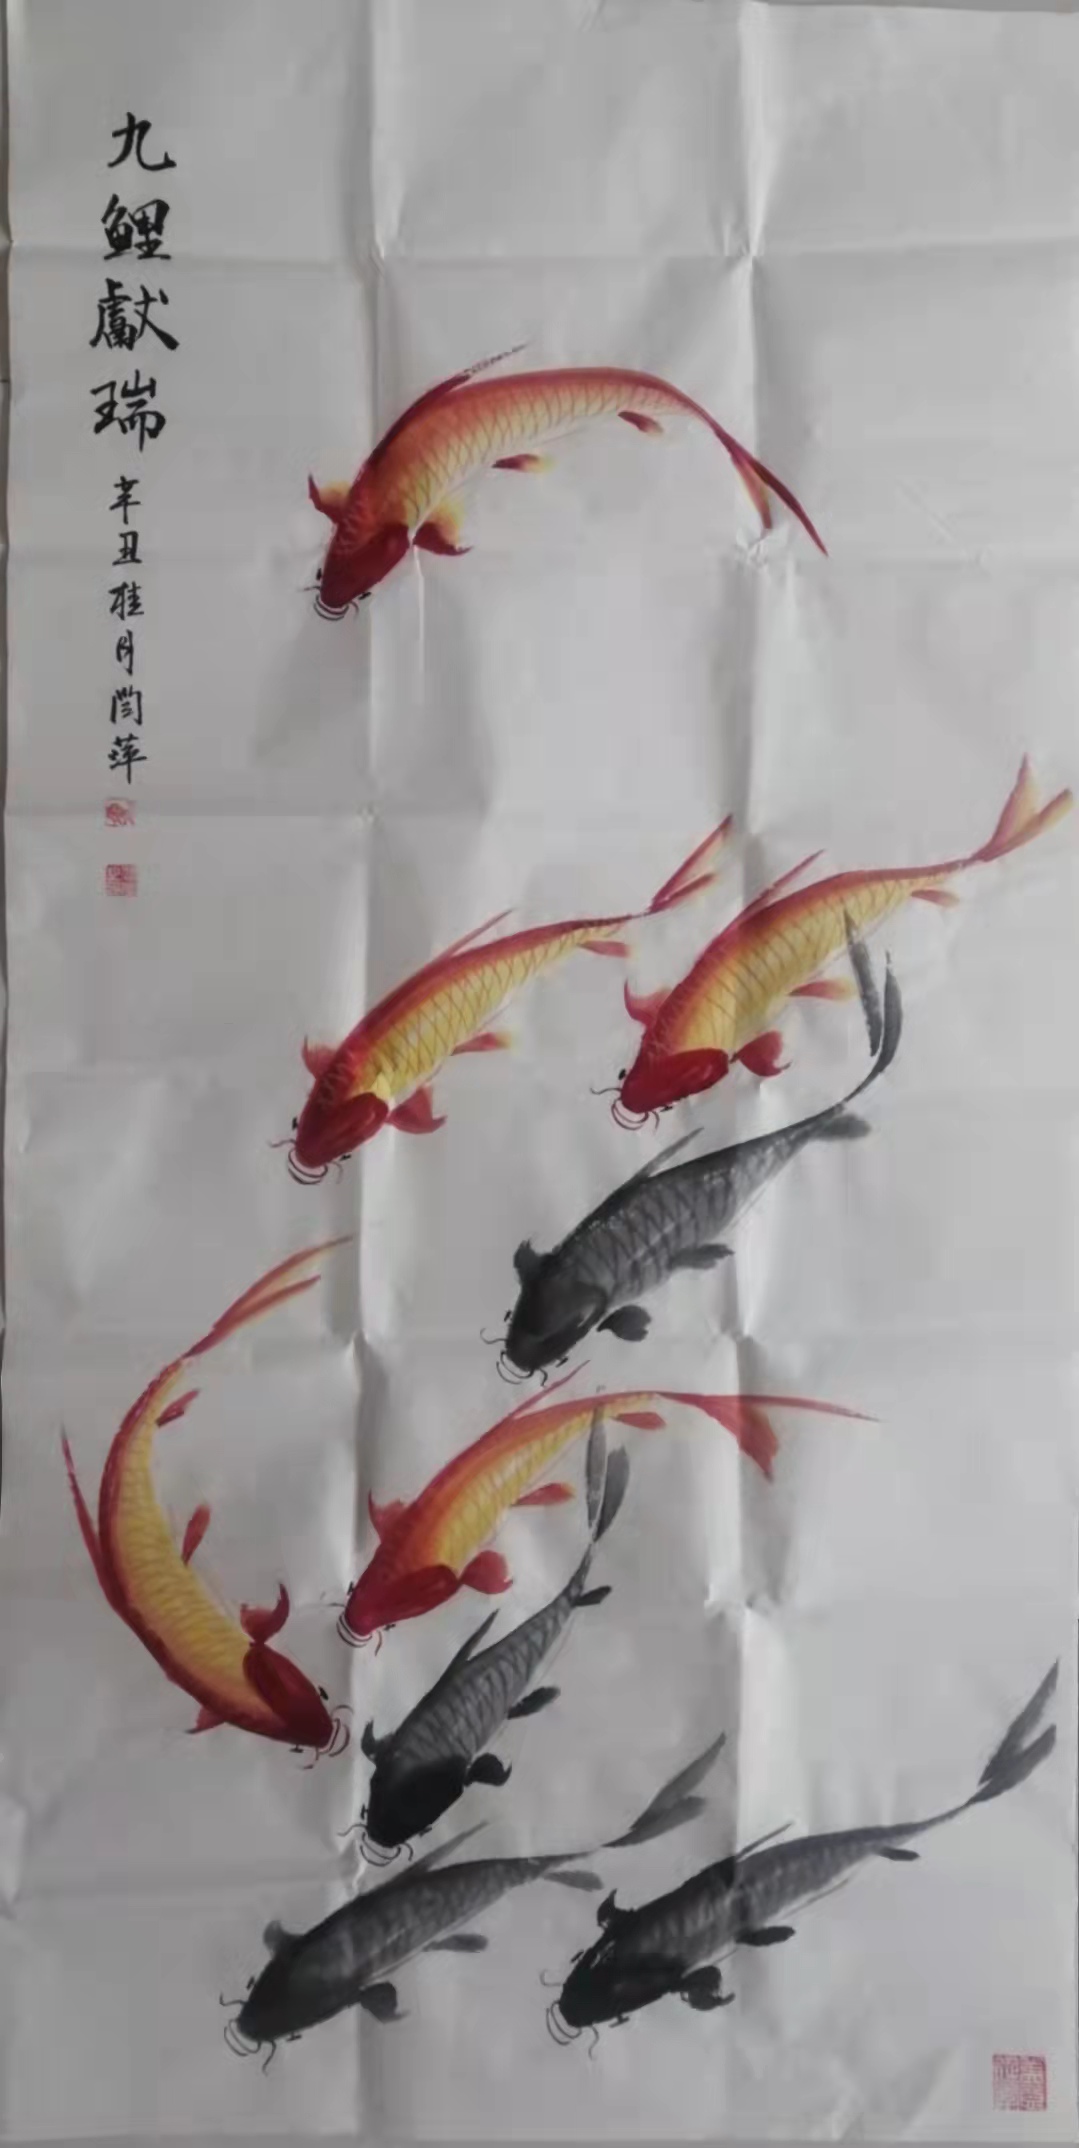 九鲤獻瑞
辛丑桂月闫萍